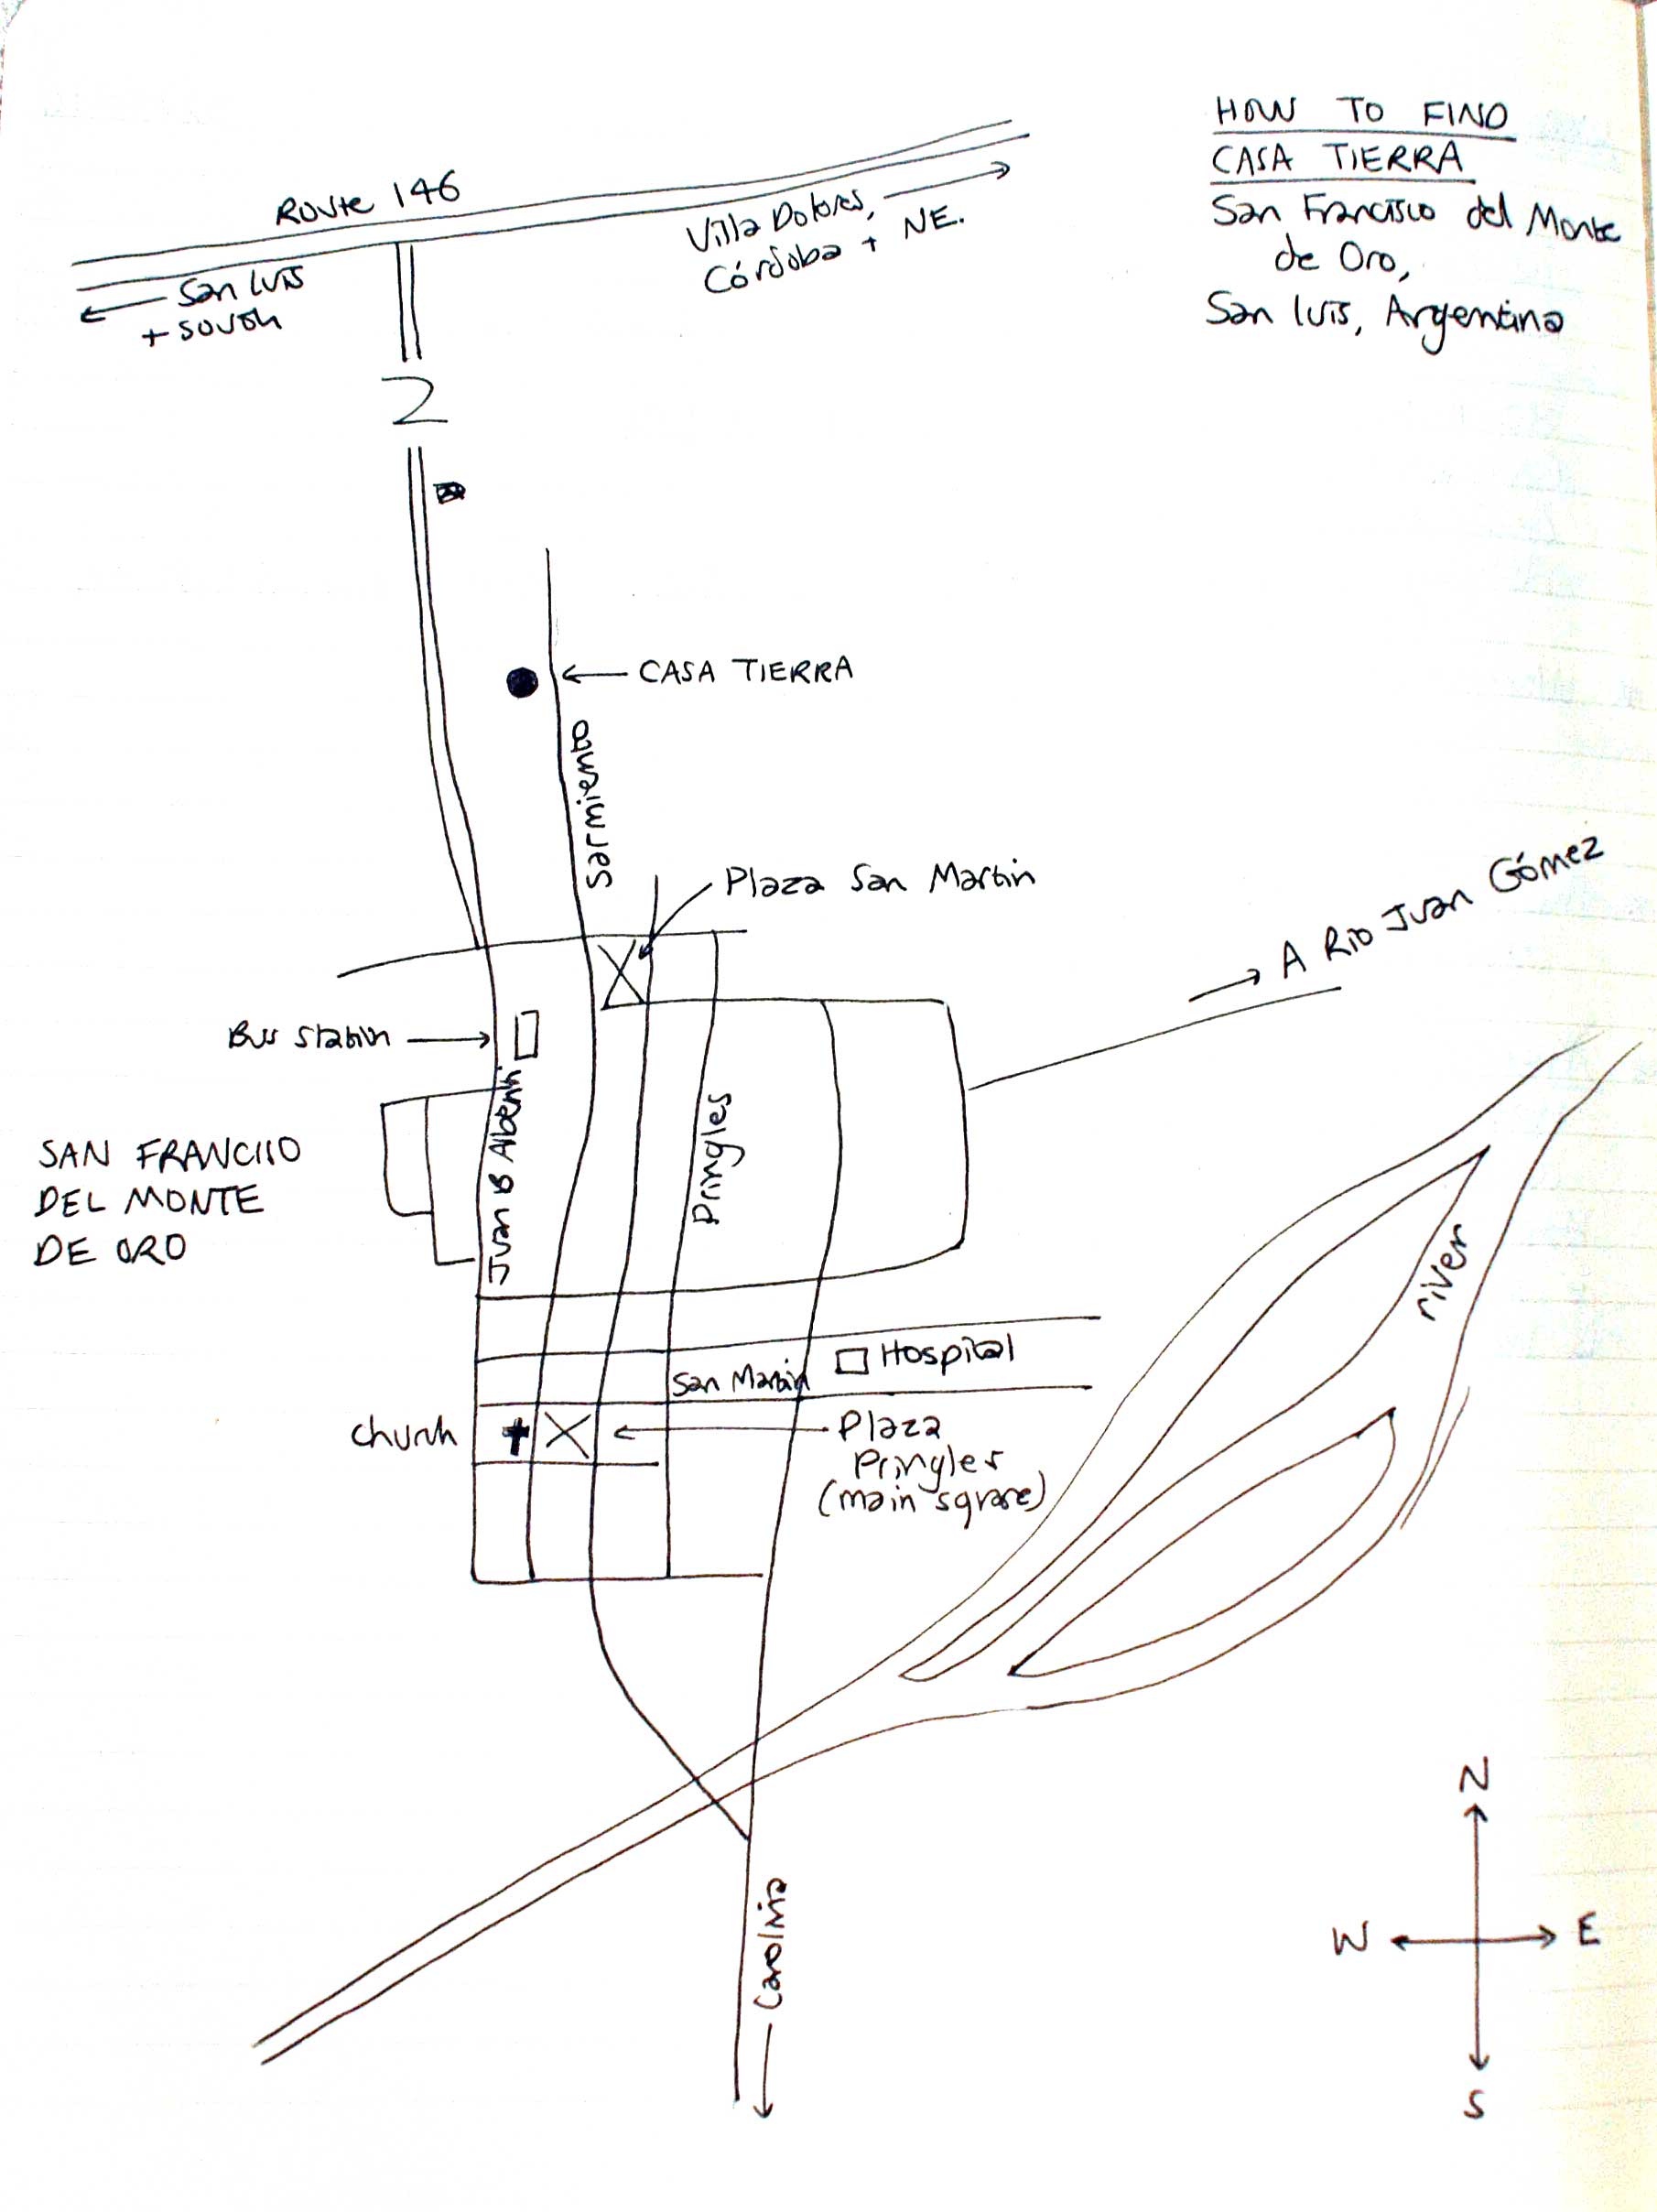 HOW TO FIND
CASA TIERRA
San Francisco del Monte
de Oro,
San Luis, Argentina
Route 146
Villa Dolores,
Córdoba + NE.
San Luis
+ south
CASA TIERRA
Sarmiento
Plaza San Martin
A Rio Juan Gómez
Bus station
Juan B Alberdi
Pringles
SAN FRANCISCO
DEL MONTE
DE ORO
river
Hospital
San Martin
Church
Plaza
Pringles
(main square)
Carolina
N
W
E
S